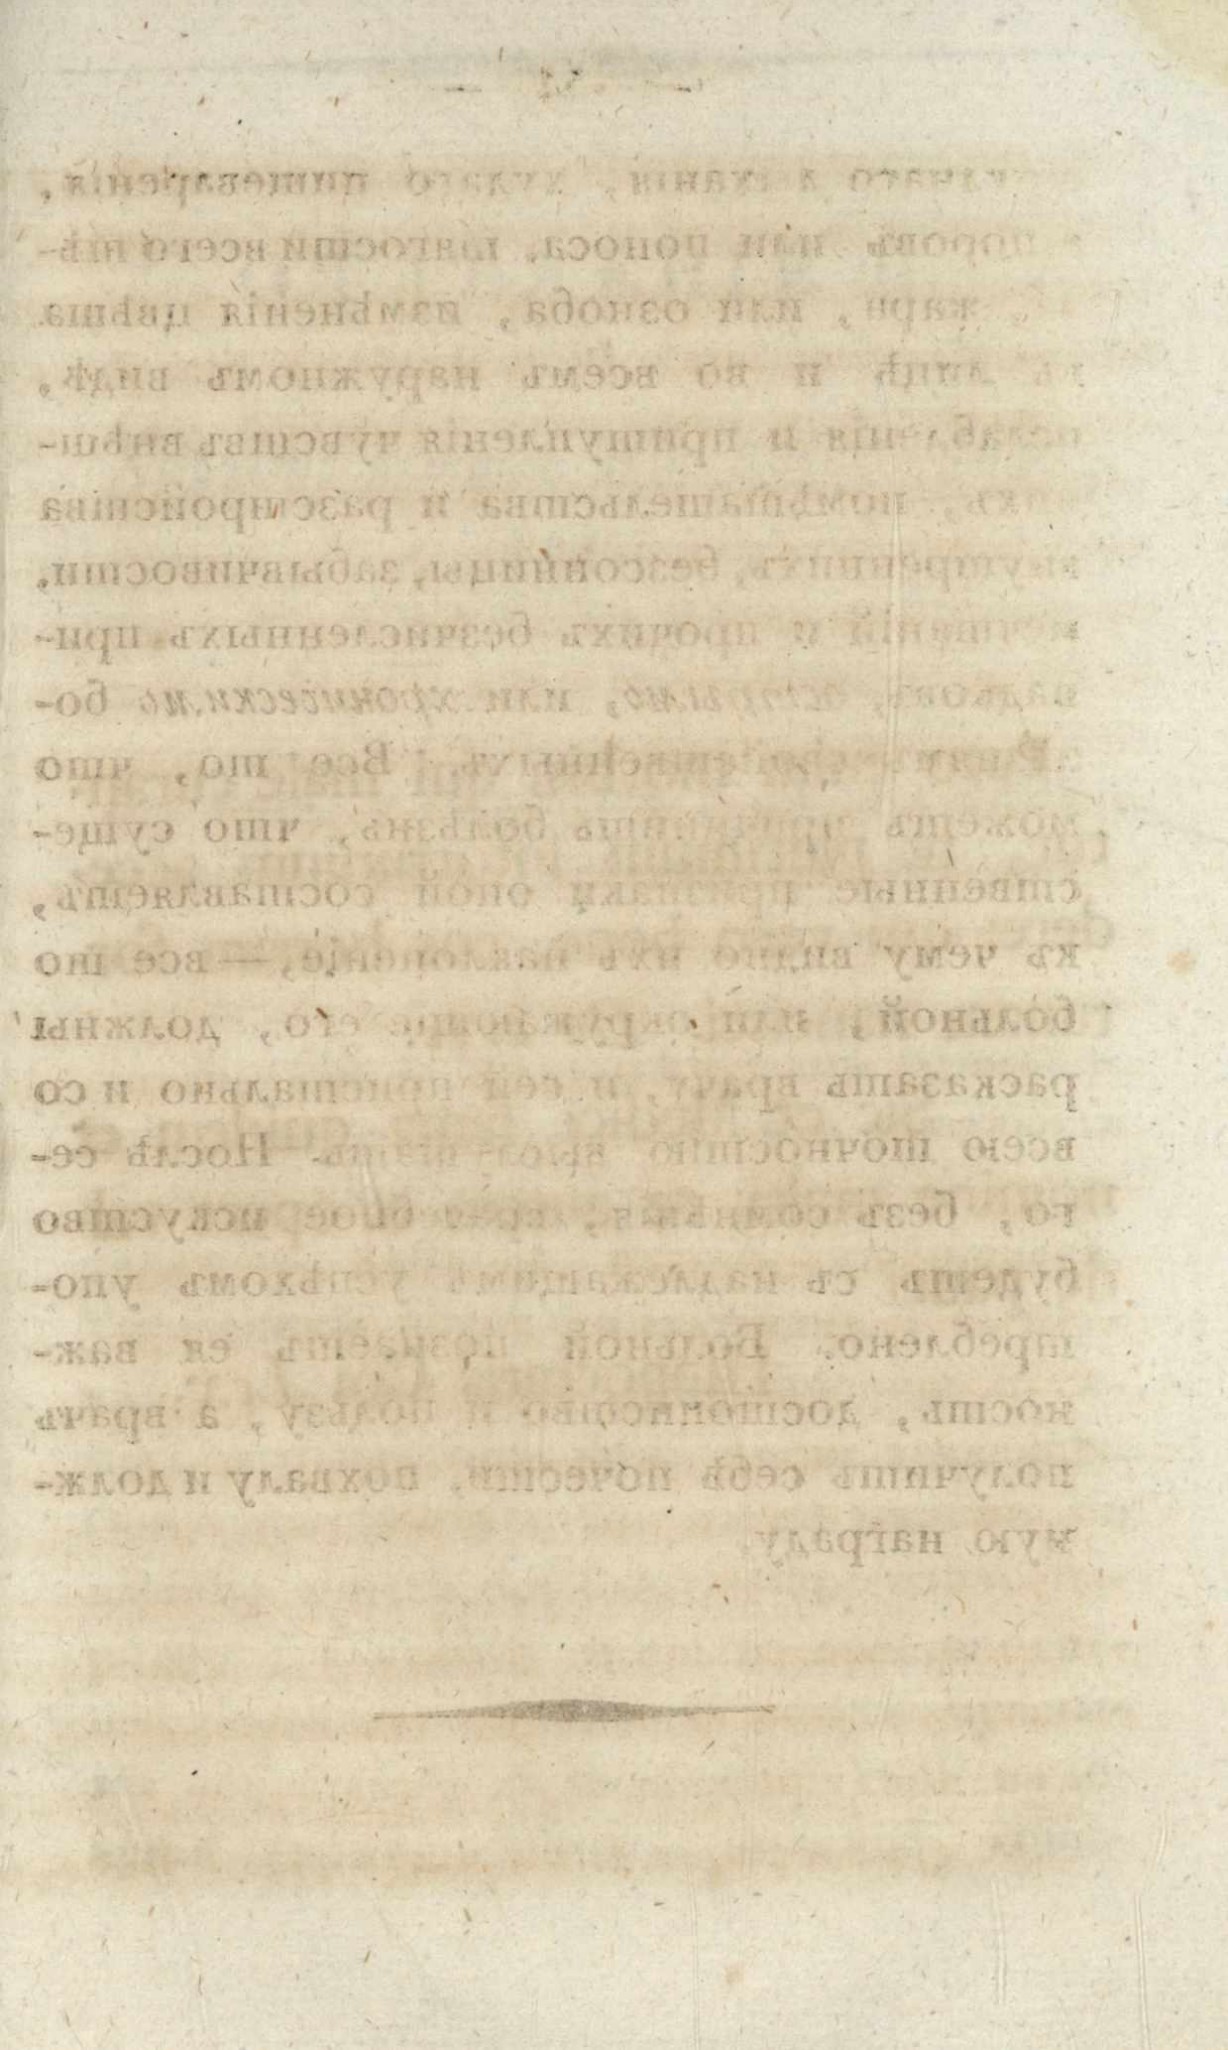 дыханія, худаго пищеваренія,
или поноса, тягости всего тѣ-
жара, или озноба, измѣненія цвѣта
лицѣ и во всемъ наружномъ видѣ,
и притупленія чувствъ внѣш-
помѣшательства и разстройства
внутреннихъ, безсонницы, забывчивости,
мечтаній и прочихъ безчисленныхъ при-
падковъ, острымъ, или хроническимъ бо-
Все то, что
можетъ причинить болѣзнь, что суще-
ственные признаки оной составляетъ,
къ чему видно ихъ наклоненіе, — все то
больной, или окружающіе его, должны
расказать врачу, и сей и со
всею точностію Послѣ се-
го, безъ сомнѣнія, врачебное искуство
будетъ съ надлежащимъ успѣхомъ упо-
треблено. Больной познаетъ ея важ-
ность, достоинство и пользу, а врачъ
получитъ себѣ почести, похвалу и долж-
ную награду.